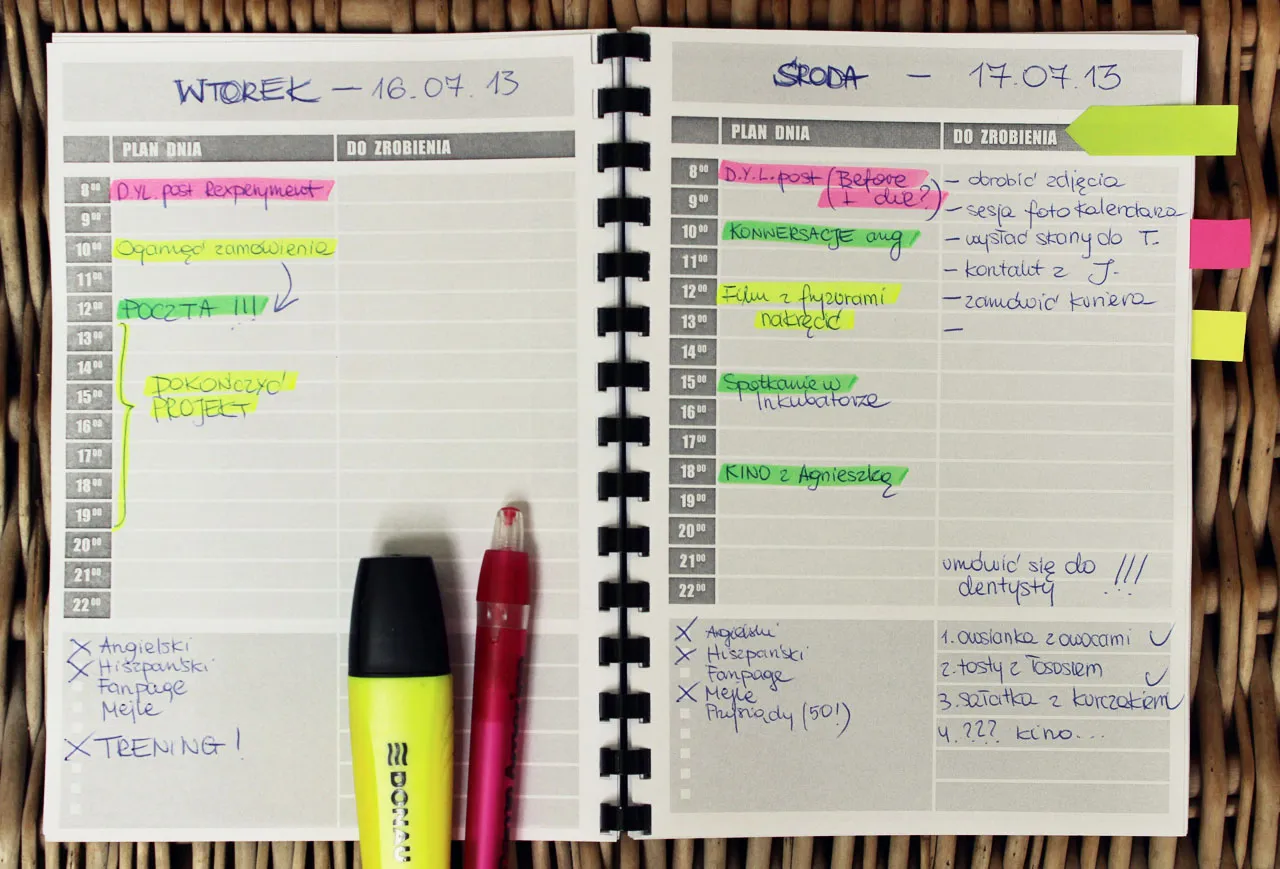 WTOREK – 16.07.13
PLAN DNIA DO ZROBIENIA
8⁰⁰ D.Y.L. post Rexperyment
9⁰⁰
10⁰⁰ Ogarnąć zamówienia
11⁰⁰
12⁰⁰ POCZTA !!!
13⁰⁰
14⁰⁰
15⁰⁰ DOKOŃCZYĆ
PROJEKT
16⁰⁰
17⁰⁰
18⁰⁰
19⁰⁰
20⁰⁰
21⁰⁰
22⁰⁰
X Angielski
X Hiszpański
Fanpage
Mejle
X TRENING!
DONAU
ŚRODA – 17.07.13
PLAN DNIA DO ZROBIENIA
8⁰⁰ D.Y.L. post (Before – obrobić zdjęcia
9⁰⁰ I die?) – sesja foto kalendarza
10⁰⁰ KONWERSACJE ang – wysłać skany do T.
11⁰⁰ – kontakt z J.
12⁰⁰ Film z fryzurami – zamówić kuriera
13⁰⁰ nakręcić –
14⁰⁰
15⁰⁰ Spotkanie w
16⁰⁰ Inkubatorze
17⁰⁰
18⁰⁰ KINO z Agnieszką
19⁰⁰
20⁰⁰
21⁰⁰ umówić się do !!!
22⁰⁰ dentysty
X Angielski
X Hiszpański
Fanpage
X Mejle
Przysiady (50!)
1. owsianka z owocami ✓
2. tosty z łososiem ✓
3. sałatka z kurczakiem ✓
4. ??? kino...